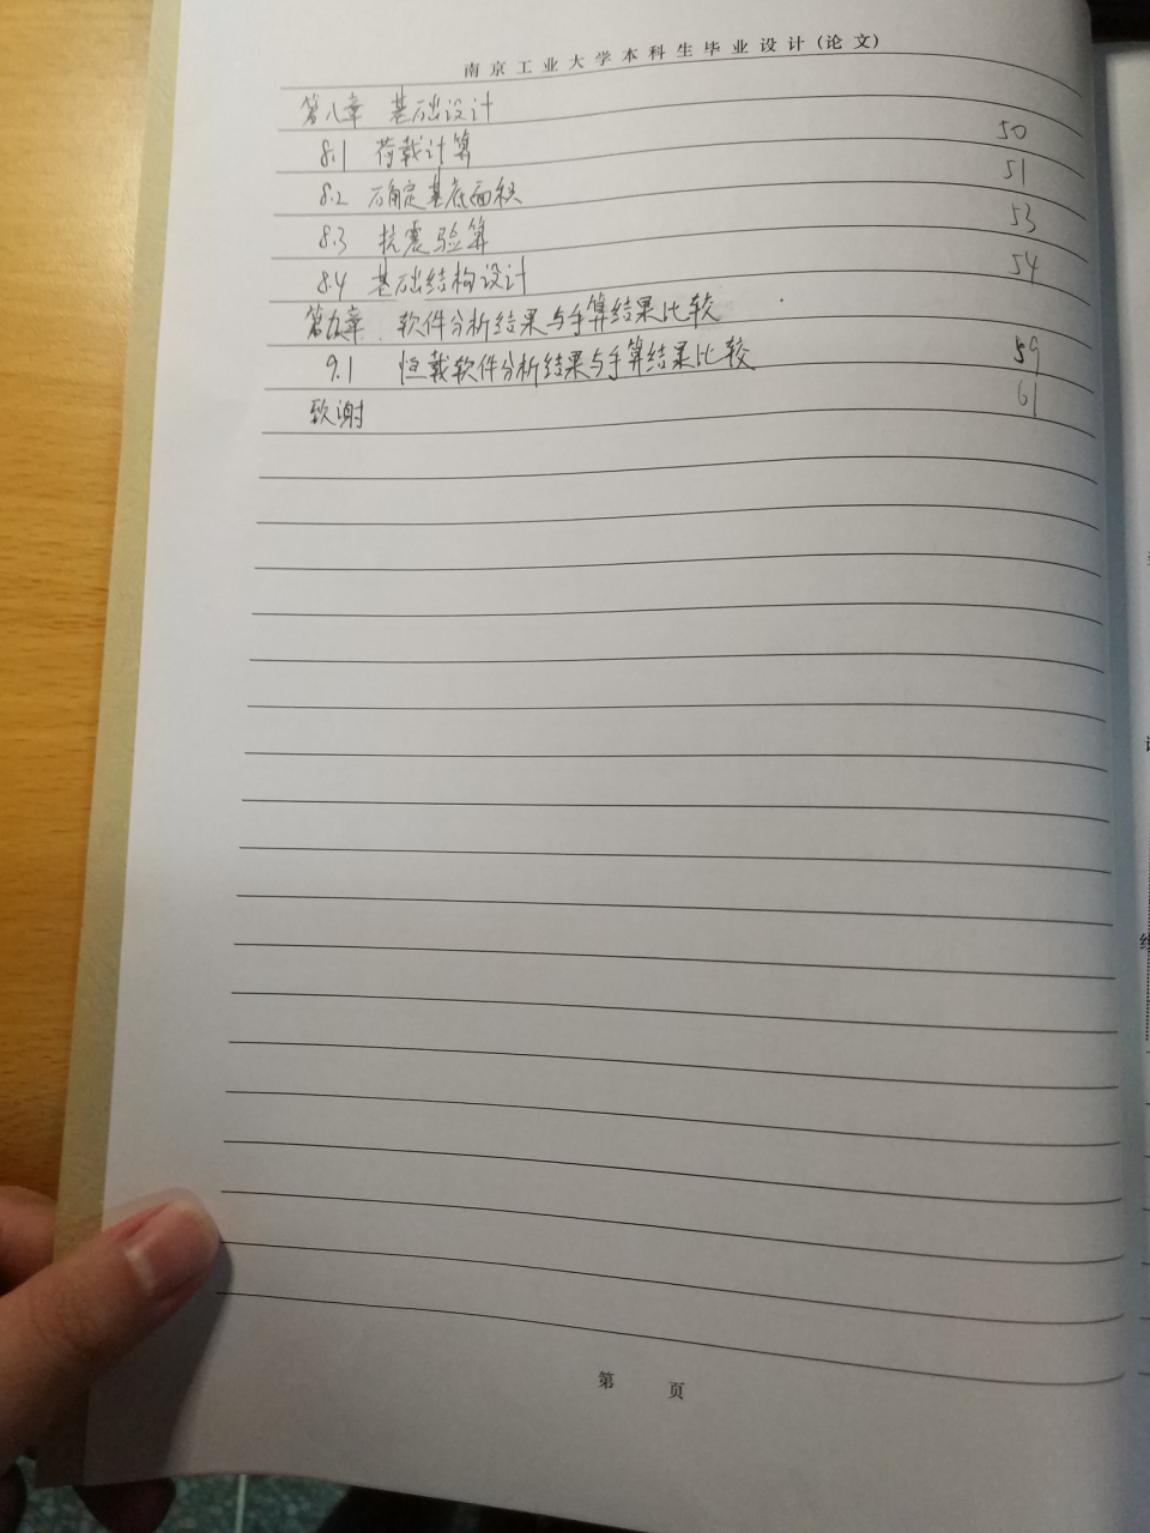 南京工业大学本科生毕业设计(论文)
第八章 基础设计
8.1 荷载计算 50
8.2 确定基底面积 51
8.3 抗震验算 53
8.4 基础结构设计 54
第九章 软件分析结果与手算结果比较
9.1 恒载软件分析结果与手算结果比较 59
致谢 61
第 页